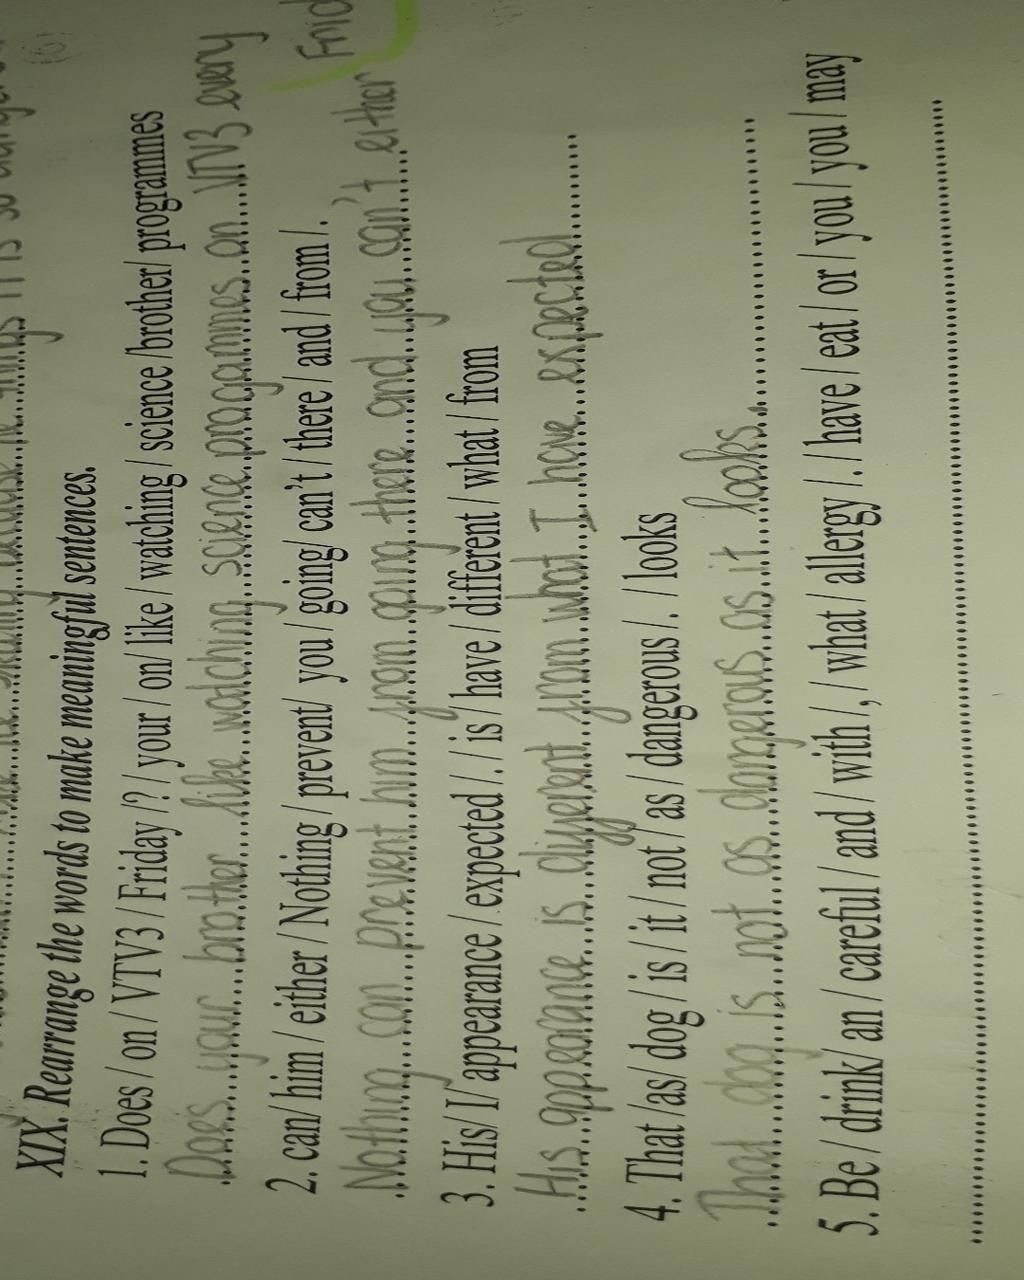 XIX. Rearrange the words to make meaningful sentences.
1. Does / on / VTV3 / Friday /? / your / on/ like / watching / science /brother/ programmes
Does your brother like watching science progammes on VTV3 every
Frid
2. can/ him / either / Nothing / prevent/ you / going/ can't / there / and / from /.
Nothing can prevent him from going there and you can't either
3. His/ I/ appearance / expected /. / is / have / different / what / from
His appearance is different from what I have expected
4. That /as/ dog / is / it / not / as / dangerous /. / looks
That dog is not as dangerous as it looks.
5. Be / drink/ an / careful / and / with /, / what / allergy /. / have / eat / or / you / you / may